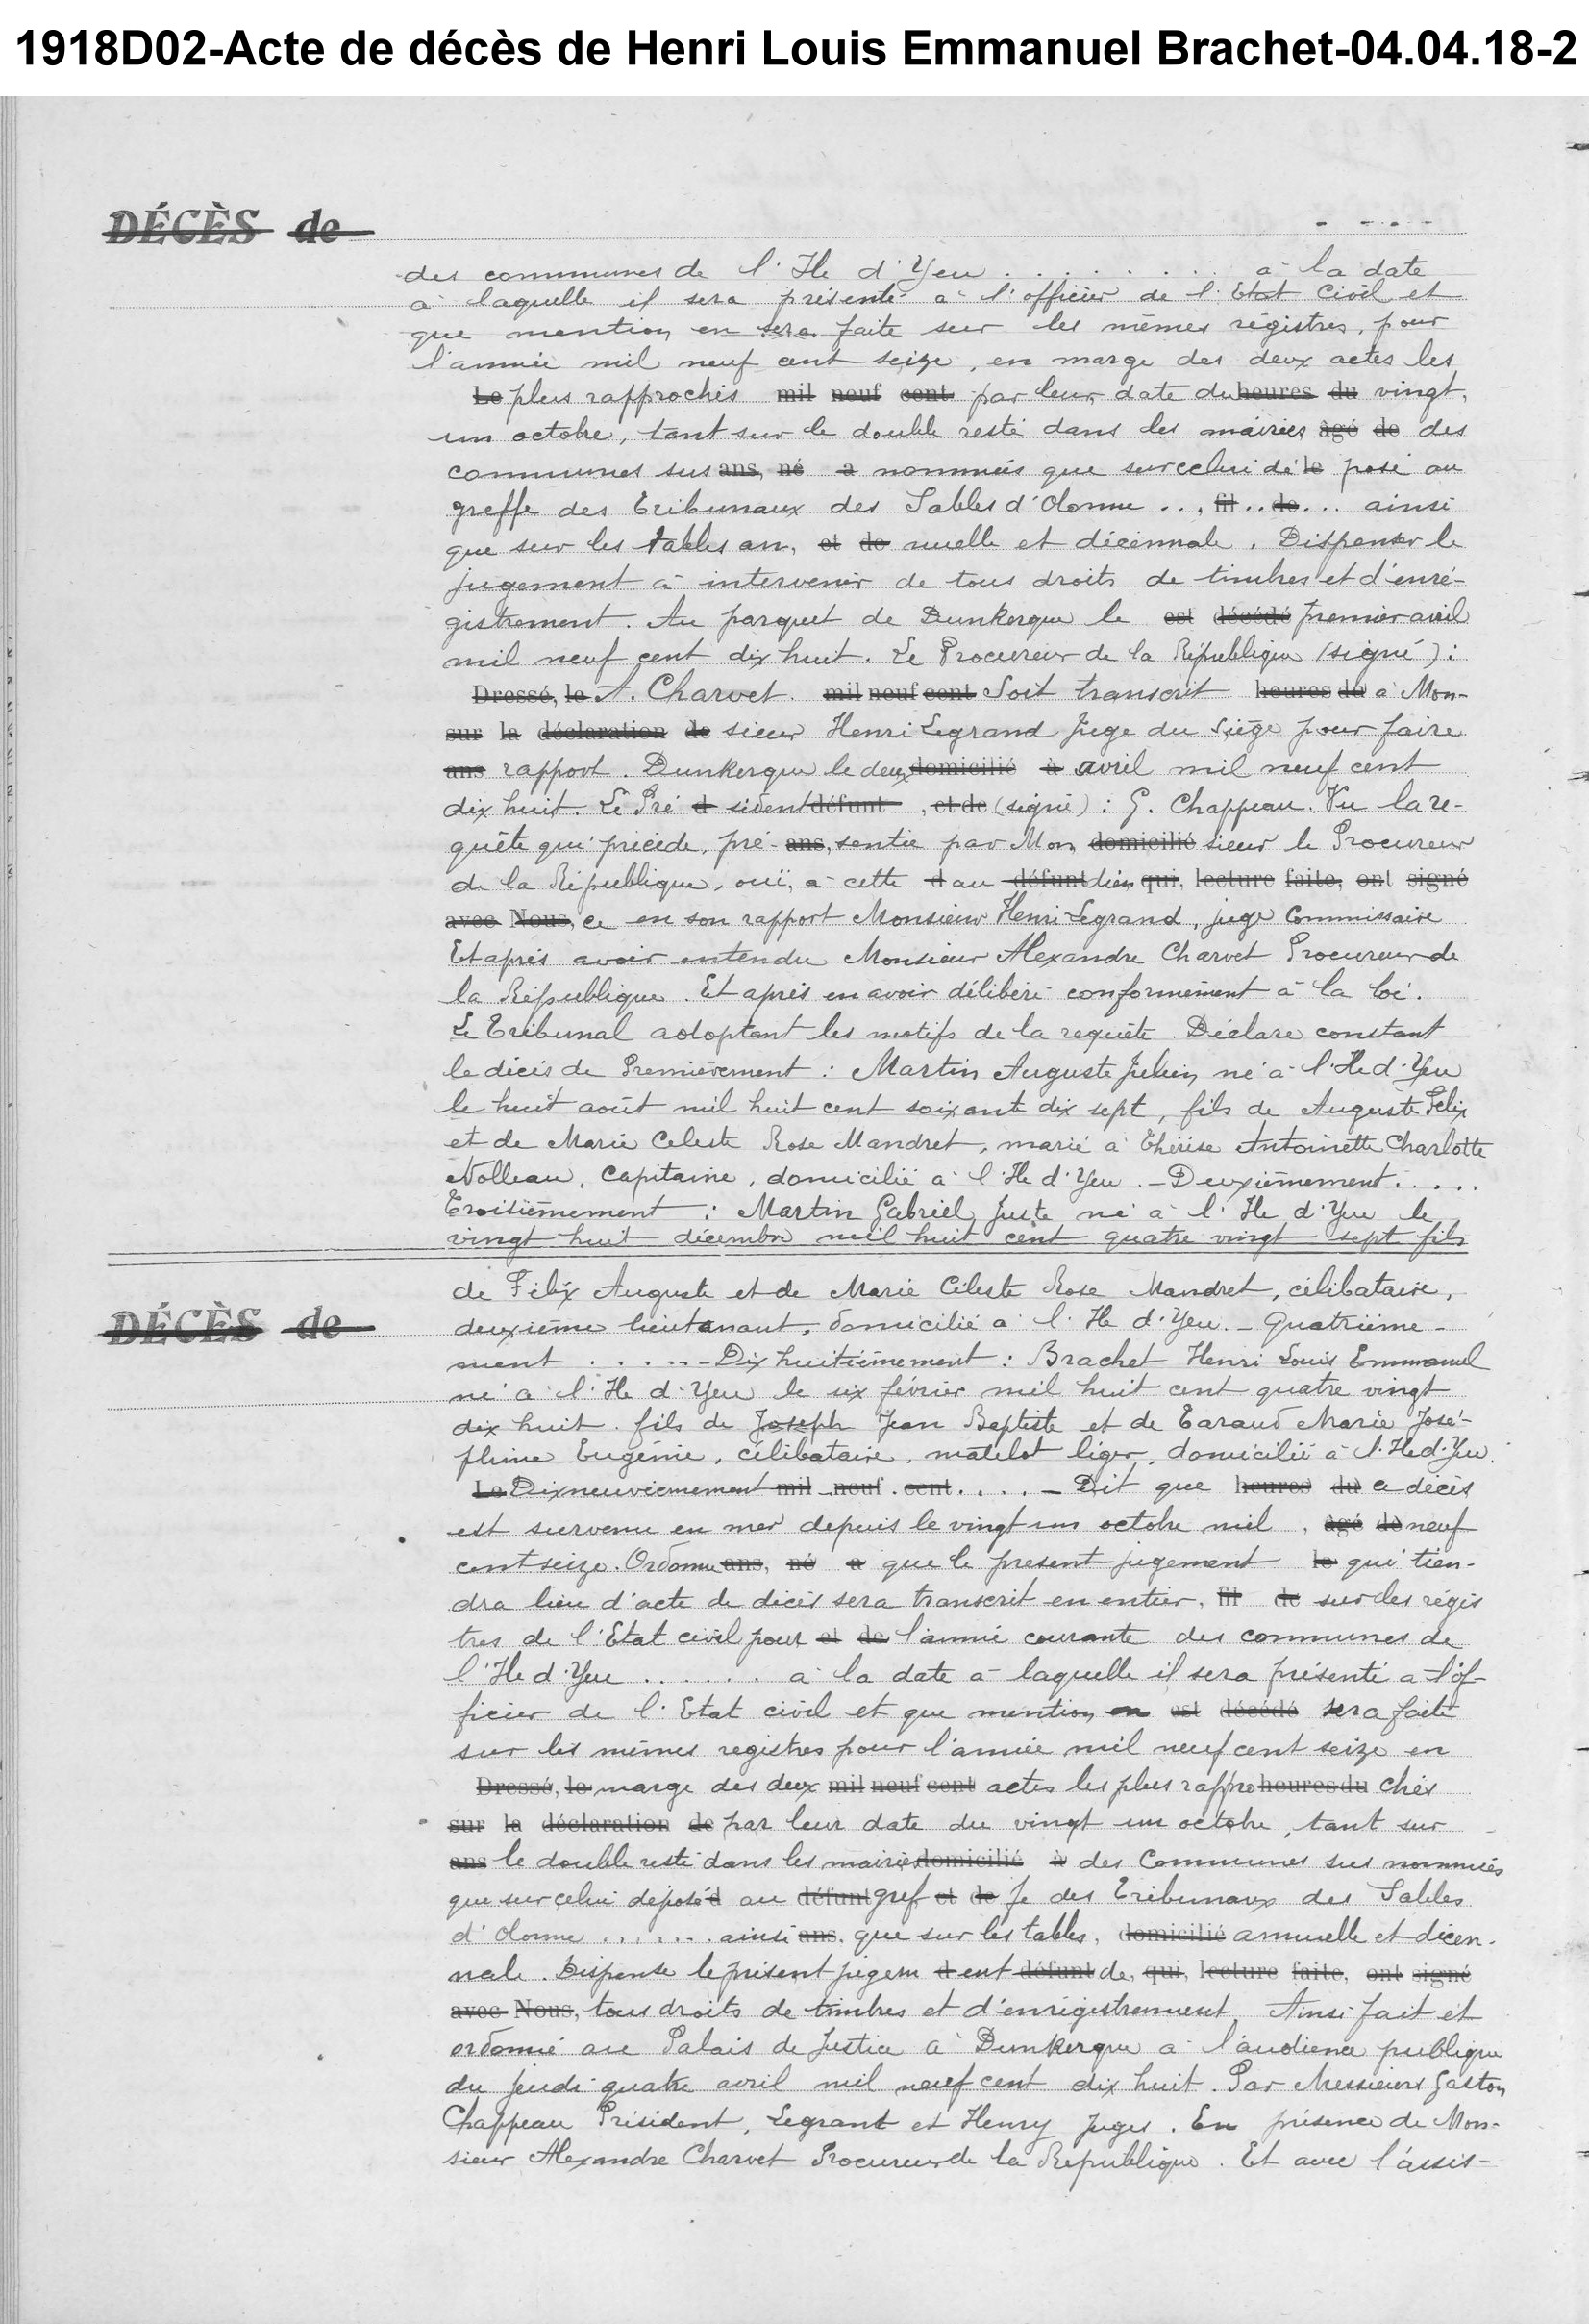 1918D02-Acte de décès de Henri Louis Emmanuel Brachet-04.04.18-2
DÉCÈS de
des communes de l'Ile d'Yeu . . . . . . . . . à la date
à laquelle il sera présenté à l'officier de l'Etat Civil et
que mention en sera faite sur les mêmes régistres, pour
l'année mil neuf cent seize, en marge des deux actes les
Le plus rapprochés mil neuf cent par leur date du heures du vingt
un octobre, tant sur le double resté dans les mairies âgé de des
communes sus ans, né a nommées que sur celui dé le posé au
greffe des Tribunaux des Sables d'Olonne . . , fil . . de . . . ainsi
que sur les tables an, et de nuelle et décennale. Dispenser le
jugement à intervenir de tous droits de timbres et d'enré-
gistrement. Au parquet de Dunkerque le est décédé premier avril
mil neuf cent dix huit. Le Procureur de la République (signé):
Dressé, le A. Charvet. mil neuf cent Soit transcrit heures du à Mon-
sur la déclaration de sieur Henri Legrand Juge du Siège pour faire
ans rapport. Dunkerque le deux domicilié à avril mil neuf cent
dix huit. Le Pré d sident défunt , et de (signé): G. Chappeau. Vu la re-
quête qui précède, pré- ans, sentée par Mon domicilié sieur le Procureur
de la République, ouï, à cette d au défunt dien qui, lecture faite, ont signé
avec Nous, ce en son rapport Monsieur Henri Legrand, juge Commissaire
Et après avoir entendu Monsieur Alexandre Charvet Procureur de
la République. Et après en avoir délibéré conformément à la loi.
Le Tribunal adoptant les motifs de la requête. Déclare constant
le décès de Premièrement: Martin Auguste Julien né à l'Ile d'Yeu
le huit août mil huit cent soixante dix sept, fils de Auguste Félix
et de Marie Celeste Rose Mandret, marié à Thérèse Antoinette Charlotte
Nolleau, Capitaine, domicilié à l'Ile d'Yeu. - Deuxièmement . . . . .
Troisièmement: Martin Gabriel Juste né à l'Ile d'Yeu le
vingt huit décembre mil huit cent quatre vingt sept fils
DÉCÈS de
de Félix Auguste et de Marie Céleste Rose Mandret, célibataire,
deuxième lieutenant, domicilié à l'Ile d'Yeu. - Quatrième-
ment . . . . . - Dix huitièmement: Brachet Henri Louis Emmanuel
né à l'Ile d'Yeu le six février mil huit cent quatre vingt
dix huit. fils de Joseph Jean Baptiste et de Taraud Marie José-
phine Eugénie, célibataire, matelot léger, domicilié à l'Ile d'Yeu.
Le Dixneuvièmement mil neuf cent . . . . - Dit que heures du ce décès
est survenu en mer depuis le vingt un octobre mil , âgé de neuf
cent seize. Ordonne ans, né a que le présent jugement le qui tien-
dra lieu d'acte de décès sera transcrit en entier, fil de sur les régis
tres de l'Etat civil pour et de l'année courante des communes de
l'Ile d'Yeu . . . . . . à la date à laquelle il sera présenté à l'of-
ficier de l'Etat civil et que mention en est décédé sera faite
sur les mêmes registres pour l'année mil neuf cent seize en
Dressé, le marge des deux mil neuf cent actes les plus rappro heures du chés
sur la déclaration de par leur date du vingt un octobre, tant sur
ans le double resté dans les mairies domicilié à des Communes sus nommées
que sur celui déposé d au défunt gref et de fe des Tribunaux des Sables
d'Olonne . . . . . . ainsi ans, que sur les tables, domicilié annuelle et décen-
nale. Dispense le présent jugem d ent défunt de, qui, lecture faite, ont signé
avec Nous, tous droits de timbres et d'enrégistrement. Ainsi fait et
ordonné au Palais de Justice à Dunkerque à l'audience publique
du Jeudi quatre avril mil neuf cent dix huit. Par Messieurs Gaston
Chappeau Président, Legrant et Henry Juges. En présence de Mon-
sieur Alexandre Charvet Procureur de la République. Et avec l'assis-